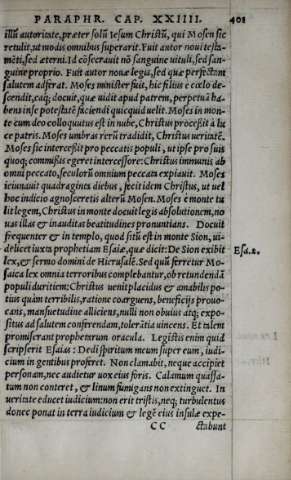 PARAPHR. CAP. XXIIII. 401
illũ autoritate, præter solũ Iesum Christũ, qui Mosen sic
retulit, ut modis omnibus superarit. Fuit autor noui testa-
mẽti, sed æterni. Id cõsecrauit nõ sanguine uituli, sed san-
guine proprio. Fuit autor nouæ legis, sed quæ perfectam
salutem adferat. Moses minister fuit, hic filius e cœlo de-
scendit, eaq́; docuit, quæ uidit apud patrem, perpetuã ha-
bens in se potestatẽ faciendi quicquid uelit. Moses in mon-
te cum deo colloquutus est in nube, Christus processit à lu
ce patris. Moses umbras rerũ tradidit, Christus ueritatẽ.
Moses sic intercessit pro peccatis populi, ut ipse pro suis
quoq; commissis egeret intercessore: Christus immunis ab
omni peccato, seculorũ omnium peccata expiauit. Moses
ieiunauit quadraginta diebus, fecit idem Christus, ut uel
hoc indicio agnosceretis alterũ Mosen. Moses è monte tu
lit legem, Christus in monte docuit legis absolutionem, no
uas illas & inauditas beatitudines pronuntians. Docuit
frequenter & in templo, quod sitũ est in monte Sion, ui-
delicet iuxta prophetiam Esaiæ, quæ dicit: De Sion exibit
lex, & sermo domini de Hierusalẽ. Sed quũ ferretur Mo-
Esa. 2.
saica lex omnia terroribus complebantur, ob retundendã
populi duritiem: Christus uenit placidus & amabilis po-
tius quàm terribilis, ratione coarguens, beneficijs prouo-
cans, mansuetudine alliciens, nulli non obuius atq; expo-
situs ad salutem conferendam, tolerãtia uincens. Et talem
promiserant prophetarum oracula. Legistis enim quid
scripserit Esaias: Dedi spiritum meum super eum, iudi-
cium in gentibus proferet. Non clamabit, neque accipiet
personam, nec audietur uox eius foris. Calamum quassa-
tum non conteret, & linum fumigans non extinguet. In
ueritate educet iudicium: non erit tristis, neq; turbulentus
donec ponat in terra iudicium & legẽ eius insulæ expe-
CC ctabunt